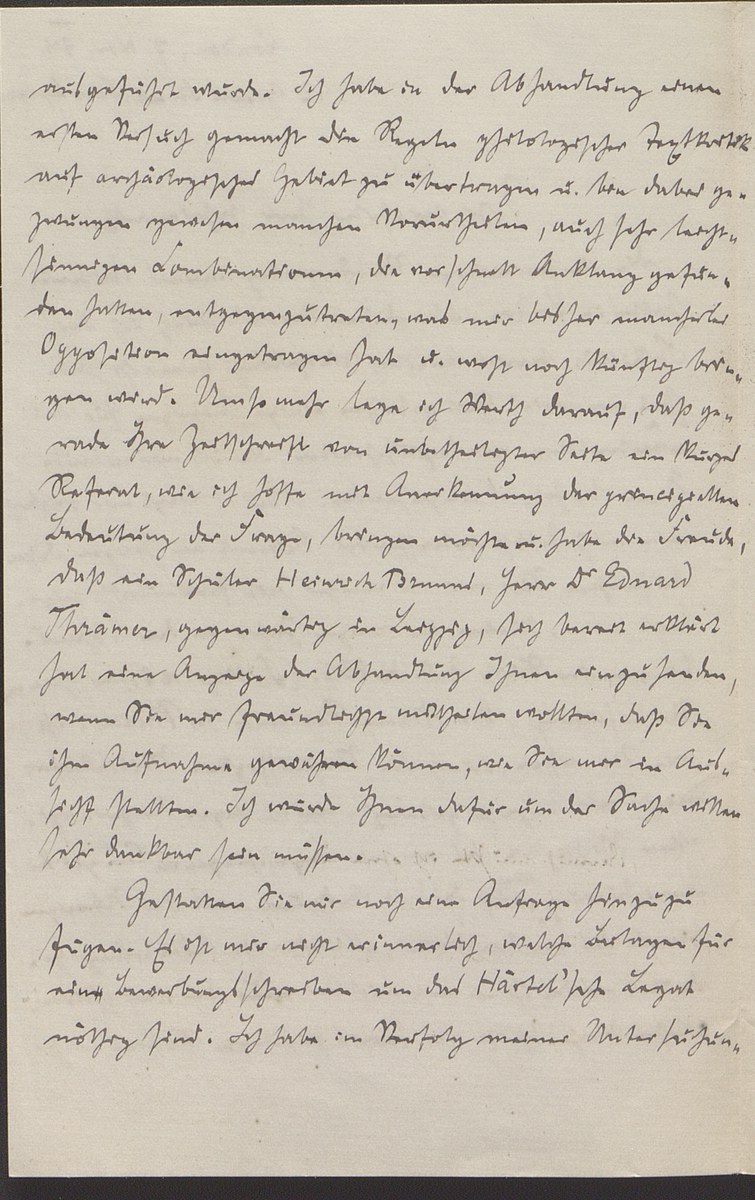 ausgeführt wurde. Ich habe in der Abhandlung einen
ersten Versuch gemacht die Regeln philologischer Textkritik
auf archäologisches Gebiet zu übertragen u. bin dabei ge-
zwungen gewesen manchen Vorurtheilen, auch sehr leicht-
sinnigen Combinationen, die vorschnell Anklang gefun-
den hatten, entgegenzutreten, was mir bisher mancherlei
Opposition eingetragen hat u. wohl noch künftig brin-
gen wird. Umso mehr lege ich Werth darauf, daß ge-
rade Ihre Zeitschrift von unbetheiligter Seite ein kurzes
Referat, wie ich hoffe mit Anerkennung der principiellen
Bedeutung der Frage, bringen möchte u. habe die Freude,
daß ein Schüler Heinrich Brunns, Herr Dr Eduard
Thrämer, gegenwärtig in Leipzig, sich bereit erklärt
hat eine Anzeige der Abhandlung Ihnen einzusenden,
wenn Sie mir freundlichst mittheilen wollten, daß Sie
ihr Aufnahme gewähren können, wie Sie mir in Aus-
sicht stellten. Ich würde Ihnen dafür um der Sache willen
sehr dankbar sein müssen.
Gestatten Sie mir noch eine Anfrage hinzuzu
fügen. Es ist mir nicht erinnerlich, welche Beilagen für
ein Bewerbungsschreiben um das Härtel'sche Legat
nöthig sind. Ich habe im Verfolg meiner Untersuchun-